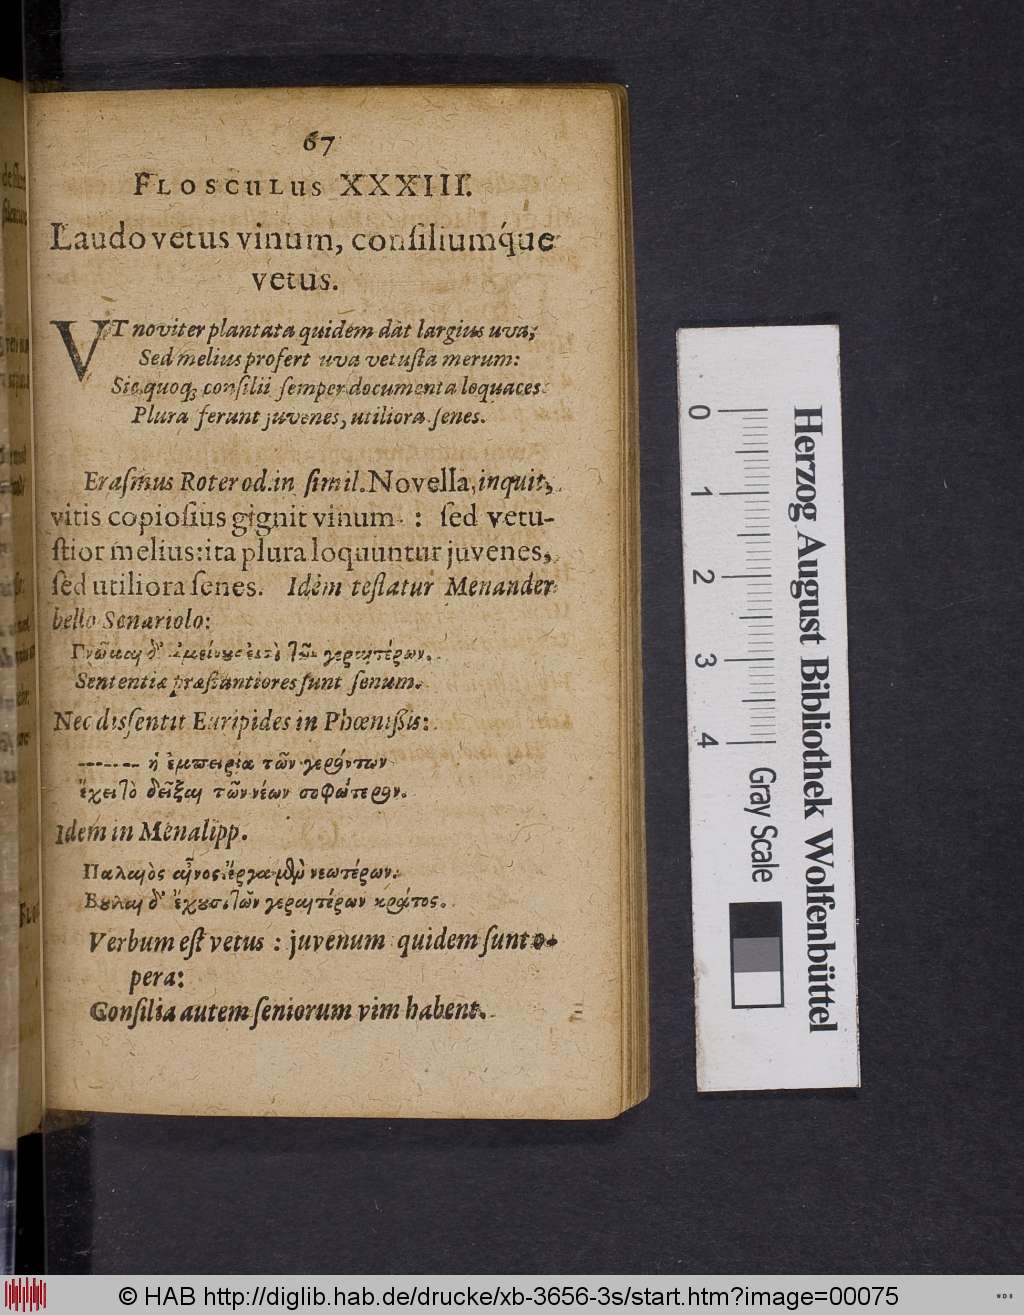 67
FLOSCULUS XXXIII.
Laudo vetus vinum, consiliumq́ue
vetus.
VT noviter plantata quidem dat largius uva;
Sed melius profert uva vetusta merum:
Sic quoq; consilii semper documenta loquaces
Plura ferunt juvenes, utiliora senes.
Erasmus Roterod. in simil. Novella, inquit,
vitis copiosius gignit vinum : sed vetu-
stior melius: ita plura loquuntur juvenes,
sed utiliora senes. Idem testatur Menander
bello Senariolo:
Γνῶμαι δ' ἀμείνους εἰσὶ τῶν γεραιτέρων.
Sententiæ præstantiores sunt senum.
Nec dissentit Euripides in Phœnissis:
------- ἡ ἐμπειρία τῶν γερόντων
ἔχει τὸ δεῖξαι τῶν νέων σοφώτερον.
Idem in Menalipp.
Παλαιὸς αἶνος· ἔργα μὲν νεωτέρων.
Βουλαὶ δ' ἔχουσι τῶν γεραιτέρων κράτος.
Verbum est vetus : juvenum quidem sunt o-
pera:
Consilia autem seniorum vim habent.
0 1 2 3 4
Gray Scale
Herzog August Bibliothek Wolfenbüttel
© HAB http://diglib.hab.de/drucke/xb-3656-3s/start.htm?image=00075